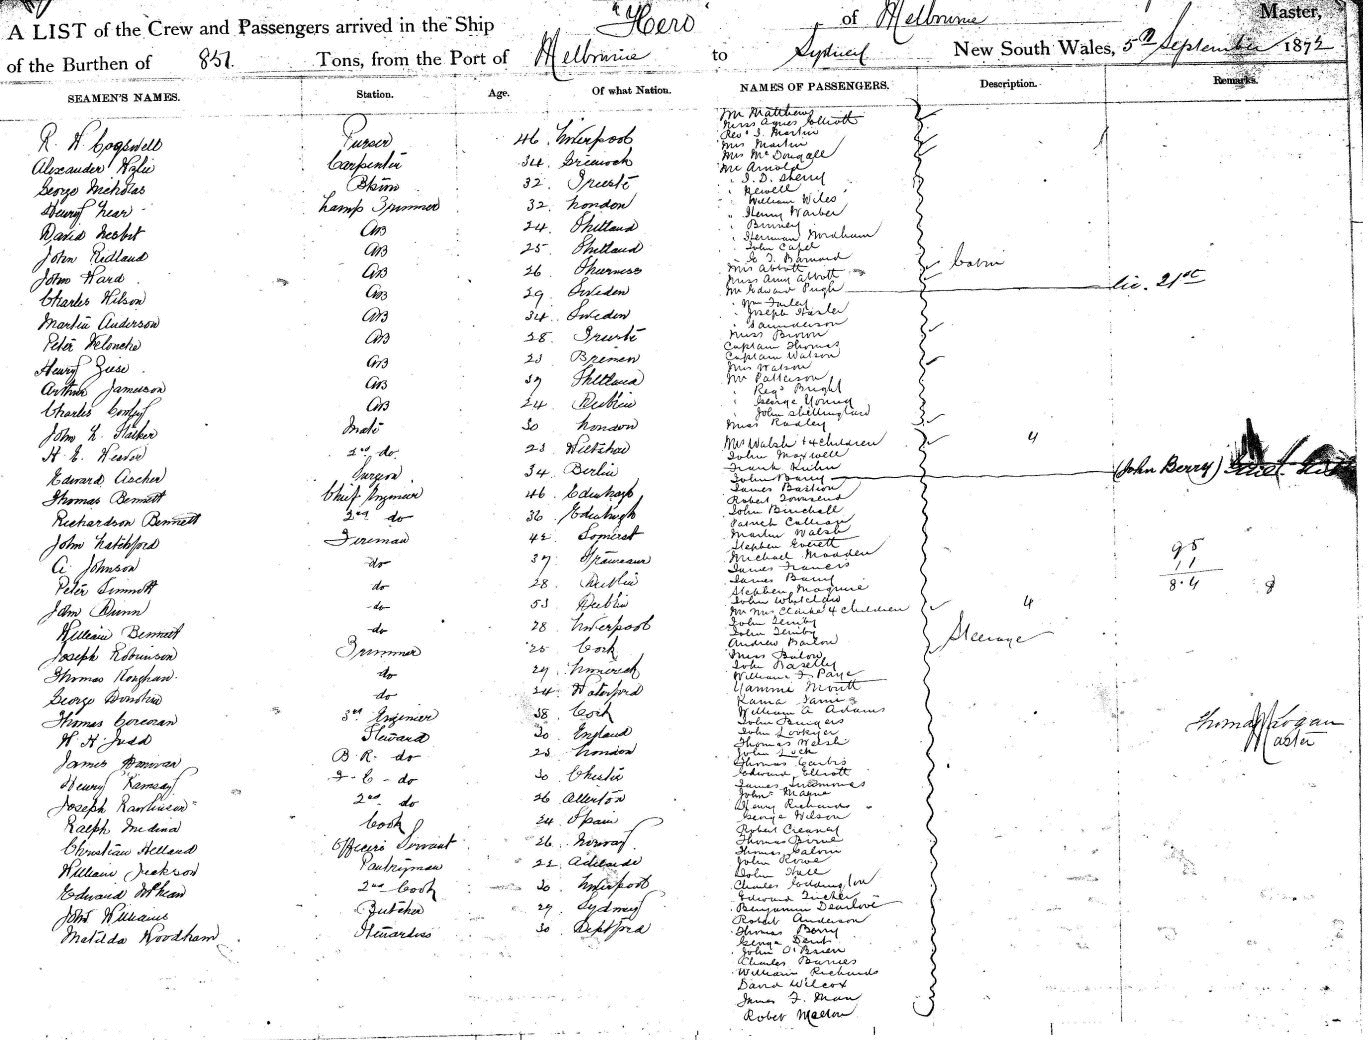 A LIST of the Crew and Passengers arrived in the Ship "Hero" of Melbourne Master,
of the Burthen of 851. Tons, from the Port of Melbourne to Sydney New South Wales, 5th September 1872
SEAMEN'S NAMES. Station. Age. Of what Nation.
R. W Cogswell Purser 46. Liverpool
Alexander Wylie Carpenter 34. Greenock
George Nicholas 32. Trieste
Henry Lear Lamp Trimmer 32. London
David Nesbit AB 24. Shetland
John Ridland AB 25. Shetland
John Ward AB 26
Charles Wilson AB 29. Sweden
Martin Anderson AB 34. Sweden
Peter AB 28. Trieste
Henry Ziese AB 23 Bremen
Arthur Jameson AB 37 Shetland
Charles AB 24 Dublin
John Mate 30 London
H. E. 2nd do 23 Wiltshire
Edward Ascher Surgeon 34. Berlin
Thomas Bennett Chief Engineer 46. Edinburgh
Richardson Bennett 2nd do 36 Edinburgh
John Latchford Fireman 42 Somerset
Johnson do 37
Peter Sinnott do 28 Dublin
John Dunn do 53 Dublin
William Bennett do 28 Liverpool
Joseph Robinson Trimmer 25 Cork
Thomas do 29 Limerick
George Donohue do 24 Waterford
Thomas Corcoran 3rd Engineer 38 Cork
W. H. Judd Steward 30 England
James Donovan B. R. do 23 London
Henry Ramsay F. C - do 30 Chester
Joseph Rawlinson 2nd do 26
Ralph Medina Cook 24 Spain
Christian Helland Officers Servant 26 Norway
William Jackson Pantryman 22 Adelaide
Edward McKean 2nd Cook 30 Liverpool
John Williams Butcher 29 Sydney
Matilda Woodham Stewardess 30 Deptford
NAMES OF PASSENGERS. Description. Remarks.
Mr Matthews
Miss Agnes Elliott
Revd J. Martin
Mrs Martin
Mrs McDougall
Mr Arnold
" J. D. Sherry
" Jewell
" William Wiles
" Henry Warber
" Binney
" Herman Wordham
" John Capel
" Barnard
Mrs Abbott Cabin
Miss Amy Abbott
Mr Edward Pugh lic. 21st
" Wm Farley
" Joseph
" Saunderson
Miss Brown
Captain Thomas
Captain Watson
Mrs Watson
Mr Patterson
" Regd Bright
" George Young
" John Shillinglaw
Miss Radley
Mrs Walsh + 4 children 4
John Maxwell
Frank Kuhn
John Barry (John Berry)
James Bastion
Robert Townsend
John Birchall
Patrick
Martin Walsh
Stephen Everett
Michael Madden 95
James Francis 11
James Barry 8.4 8
Stephen Maguire
John Whitelaw
Mr Mrs Clarke 4 children 4
John Temby
John Temby
Andrew Barton Steerage
Miss
John Baselly
William J Page
William A Adams
John Burgers
John Lockyer
Thomas Walsh Thomas Logan
John Lock Master
Thomas
Edward Elliott
James Simmons
John Mayne
Henry Richards
George Wilson
Robert
Thomas Birne
Thomas Galvin
John Rowe
John Hall
Charles Coddington
Edward Tucker
Benjamin Dearlove
Robert Anderson
Thomas Berry
George Dent
John O'Brien
Charles Barnes
William Richards
David Wilcox
James F. Man
Robert